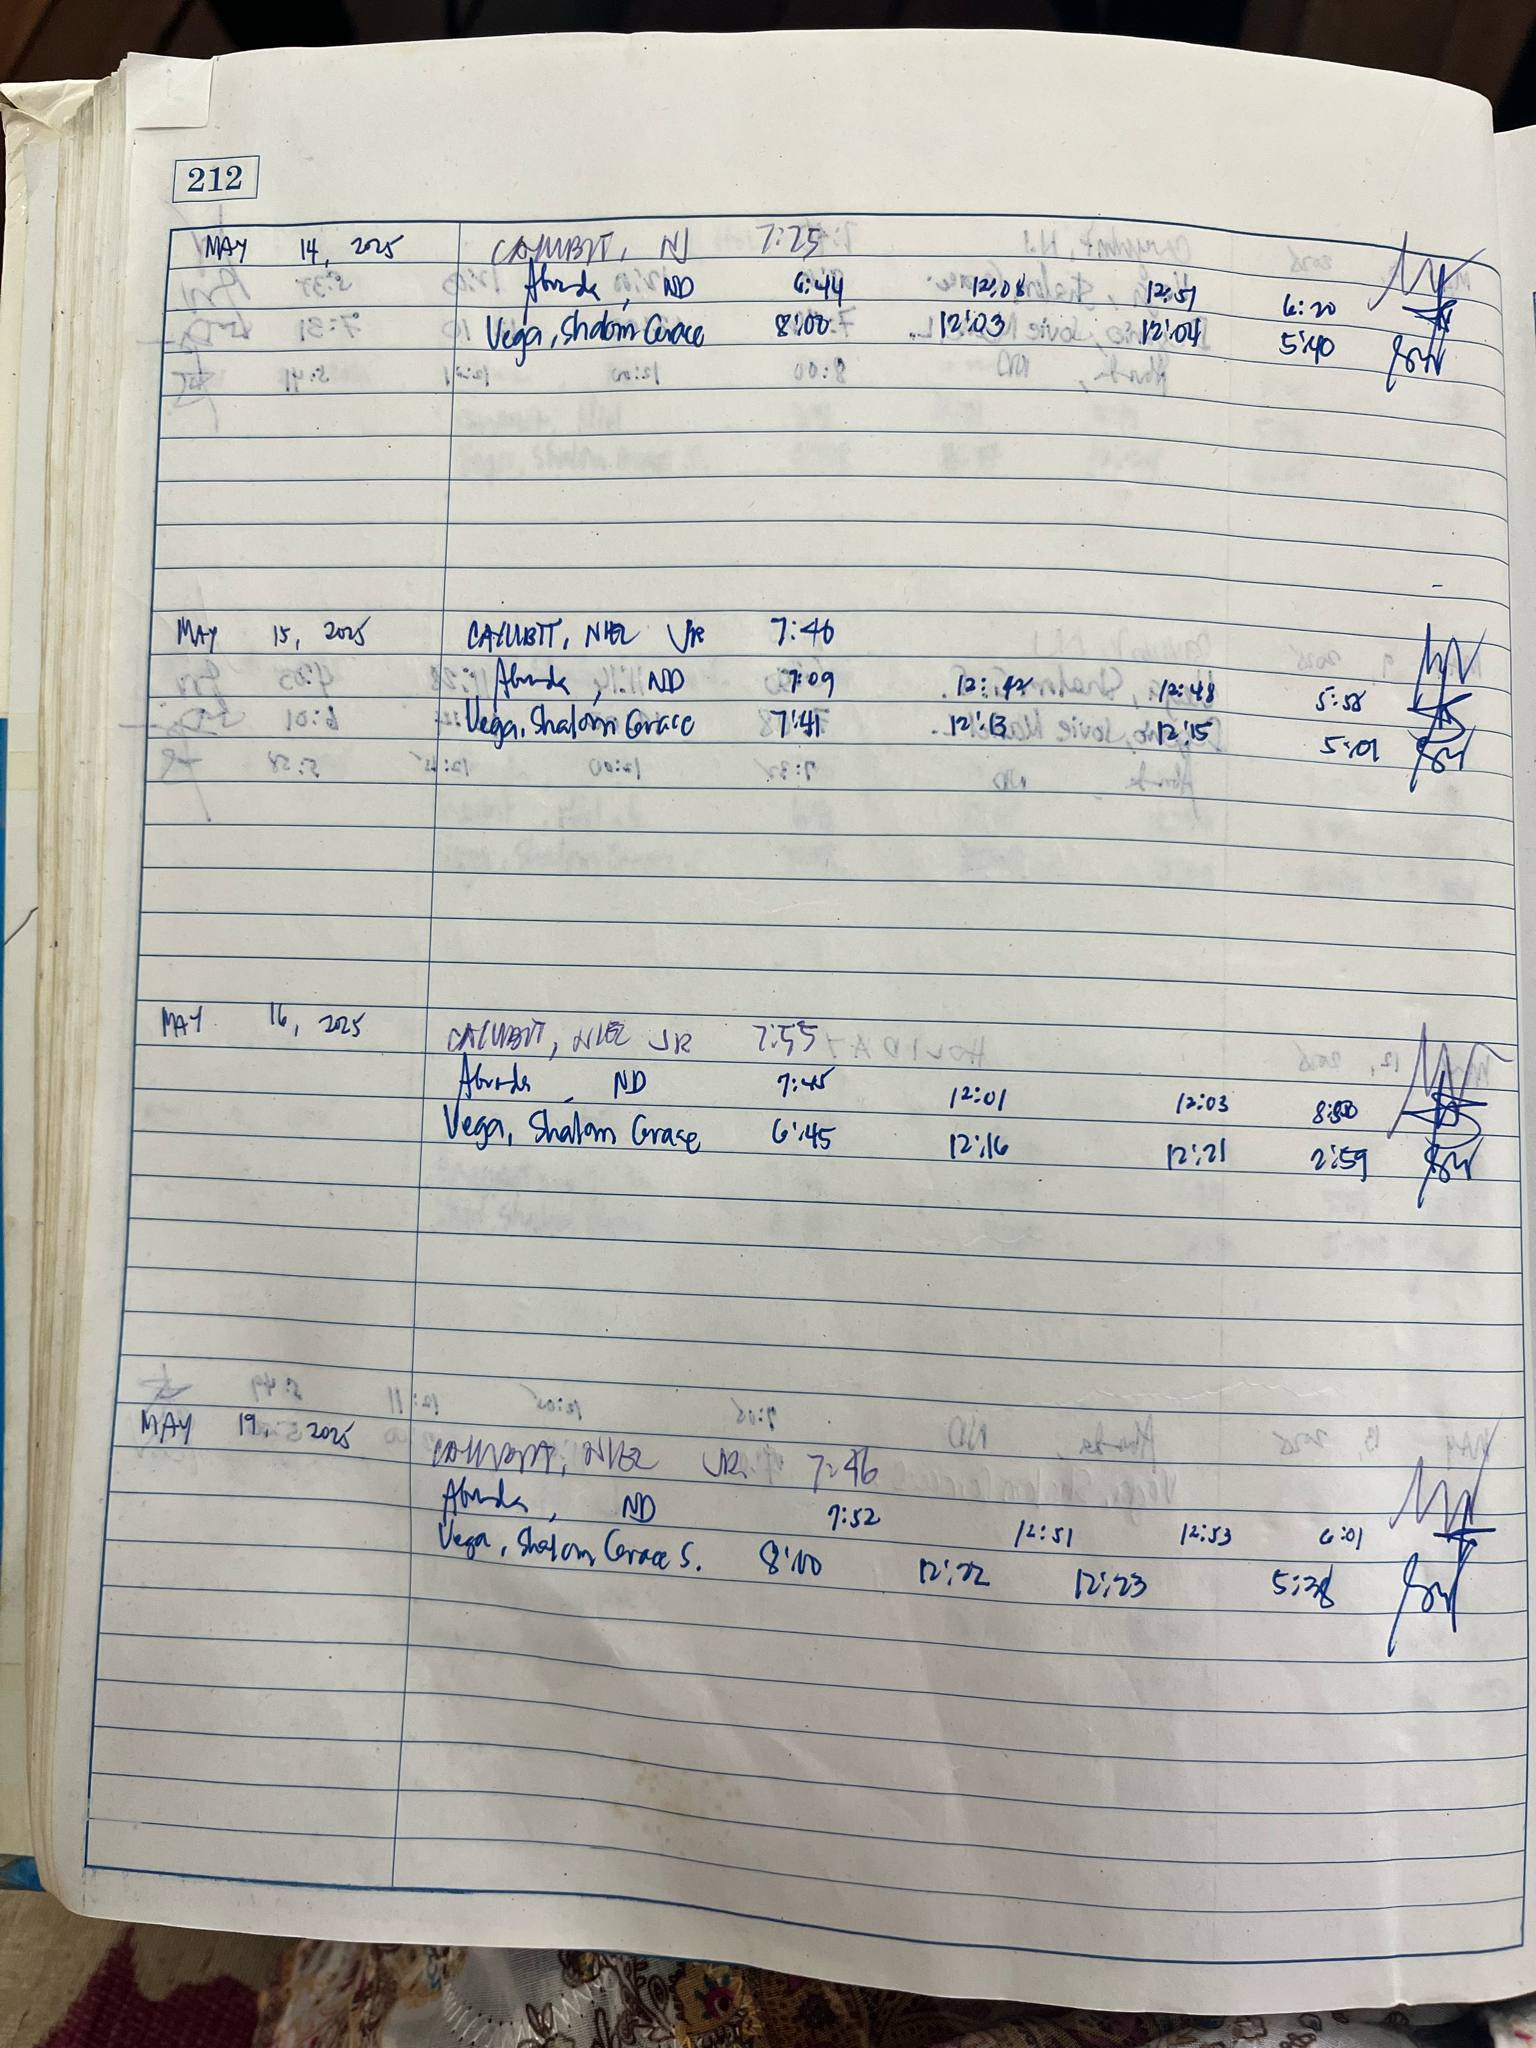 212
MAY 14, 2025 CAYUBIT, NJ 7:25
Abunda, ND 6:44 12:08 12:51 6:20
Vega, Shalom Grace 8:00 12:03 12:04 5:40
MAY 15, 2025 CAYUBIT, NIEL JR 7:46
Abunda, ND 7:09 12:42 12:48 5:58
Vega, Shalom Grace 7:41 12:13 12:15 5:01
MAY 16, 2025 CAYUBIT, NIEL JR 7:55
Abunda, ND 7:45 12:01 12:03
Vega, Shalom Grace 6:45 12:16 12:21 2:59
MAY 19, 2025 CAYUBIT, NIEL JR. 7:46
Abunda, ND 7:52 12:51 12:53 6:01
Vega, Shalom Grace S. 8:00 12:22 12:23 5:38